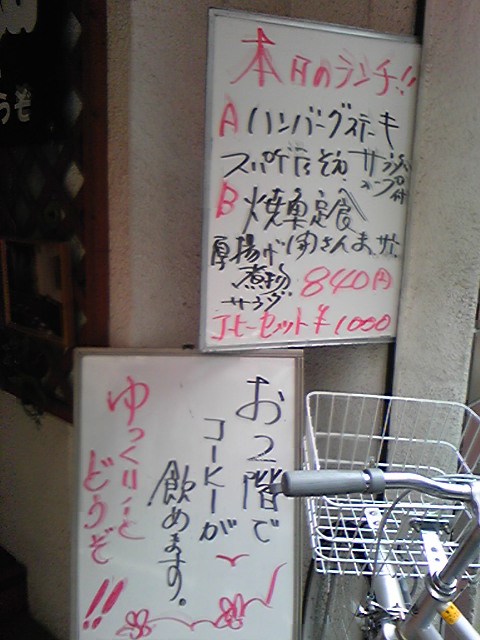 本日のランチ!!
A ハンバーグステーキ
スパゲティ サラダ スープ付
B 焼魚定食
厚揚げ
煮物
サラダ
840円
コーヒーセット ¥1000
お2階で
コーヒーが
飲めます。
ゆっくりーと
どうぞ!!
うぞ